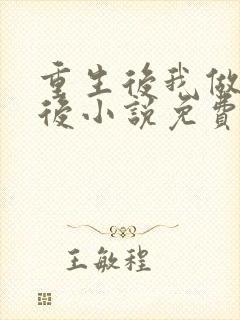 重生後我做
後小說免費
王敏程